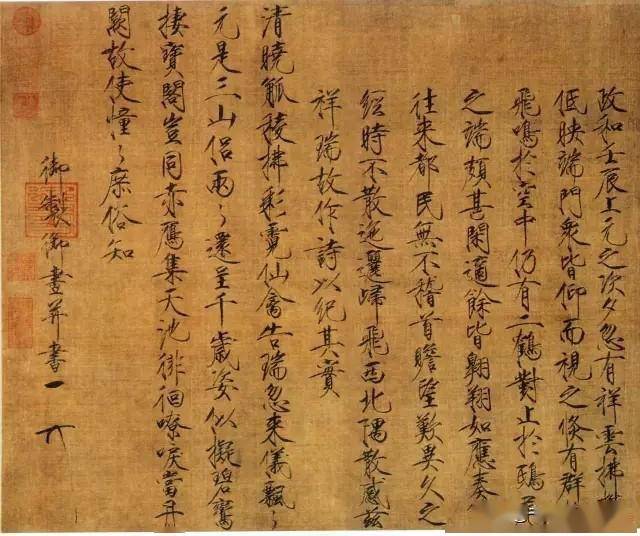 政和壬辰上元之次夕忽有祥雲拂
低映端門衆皆仰而視之倏有群
飛鳴於空中仍有二鶴對止於鴟
之端頗甚閑適餘皆翱翔如應奏
往來都民無不稽首瞻望歎異久之
經時不散迤邐歸飛西北隅散感茲
祥瑞故作詩以紀其實
清曉觚稜拂彩霓仙禽告瑞忽來儀飄々
元是三山侶兩々還呈千歲姿似擬碧鸞
棲寶閣豈同赤鴈集天池徘徊嘹唳當丹
闕故使憧々庶俗知
御製御畫并書